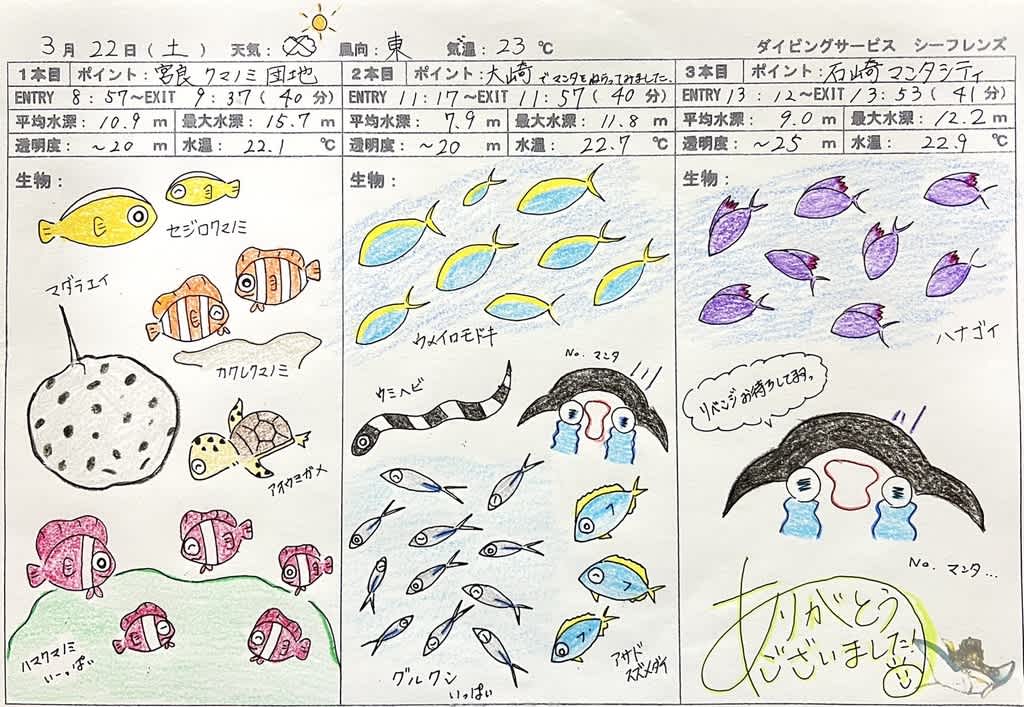 3月22日(土) 天気: 風向:東 気温:23℃
ダイビングサービス シーフレンズ
1本目 ポイント:宮良クマノミ団地
ENTRY 8:57~EXIT 9:37(40分)
平均水深:10.9m 最大水深:15.7m
透明度:~20m 水温:22.1℃
生物:
セジロクマノミ
マダラエイ
カクレクマノミ
アオウミガメ
ハマクマノミ
いーっぱい
2本目 ポイント:大崎でマンタをねらってみました.
ENTRY 11:17~EXIT 11:57(40分)
平均水深:7.9m 最大水深:11.8m
透明度:~20m 水温:22.7℃
生物:
ウメイロモドキ
ウミヘビ
No. マンタ
グルクン
いっぱい
アサド
スズメダイ
3本目 ポイント:石崎マンタシティ
ENTRY 13:12~EXIT 13:53(41分)
平均水深:9.0m 最大水深:12.2m
透明度:~25m 水温:22.9℃
生物:
ハナゴイ
リベンジお待ちしてます。
No. マンタ...
ありがとう
ございました!